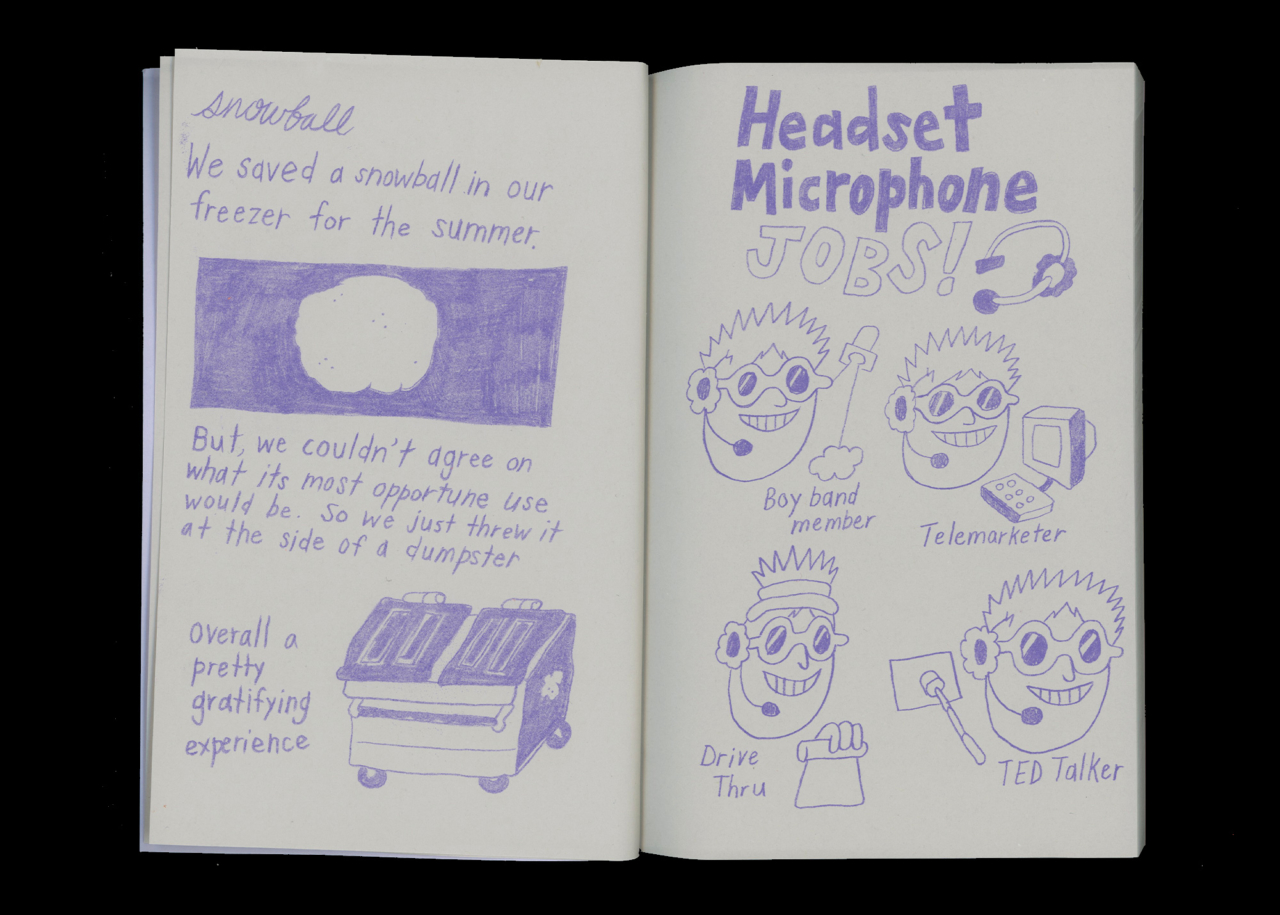 snowball
We saved a snowball in our
freezer for the summer.
But, we couldn't agree on
what its most opportune use
would be. So we just threw it
at the side of a dumpster
Overall a
pretty
gratifying
experience
Headset
Microphone
JOBS!
Boy band
member
Telemarketer
Drive
Thru
TED Talker